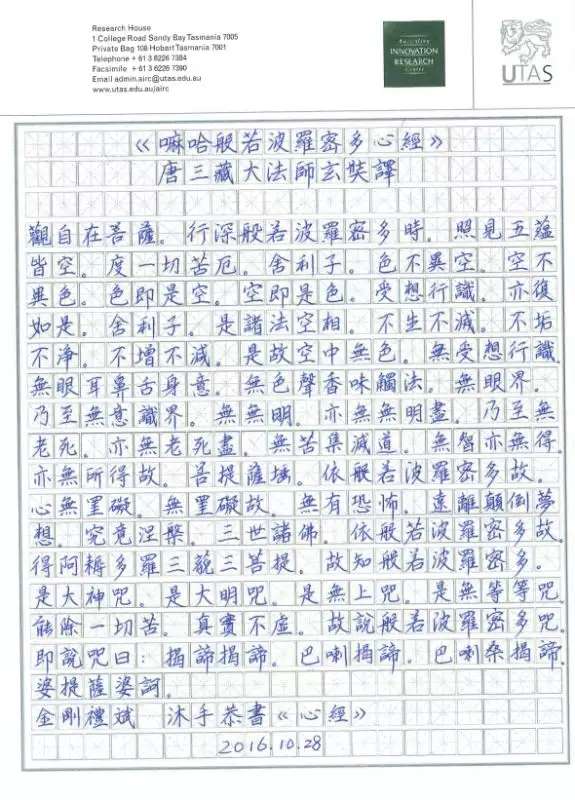 Research House
1 College Road Sandy Bay Tasmania 7005
Private Bag 108 Hobart Tasmania 7001
Telephone + 61 3 6226 7384
Facsimile + 61 3 6226 7390
Email admin.airc@utas.edu.au
www.utas.edu.au/airc
Australian
INNOVATION
RESEARCH
Centre
UTAS
《嘛哈般若波羅密多心經》
唐三藏大法師玄奘譯
觀自在菩薩。行深般若波羅密多時。照見五蘊
皆空。度一切苦厄。舍利子。色不異空。空不
異色。色即是空。空即是色。受想行識。亦復
如是。舍利子。是諸法空相。不生不滅。不垢
不淨。不增不減。是故空中無色。無受想行識。
無眼耳鼻舌身意。無色聲香味觸法。無眼界。
乃至無意識界。無無明。亦無無明盡。乃至無
老死。亦無老死盡。無苦集滅道。無智亦無得。
亦無所得故。菩提薩埵。依般若波羅密多故。
心無罣礙。無罣礙故。無有恐怖。遠離顛倒夢
想。究竟涅槃。三世諸佛。依般若波羅密多故。
得阿耨多羅三藐三菩提。故知般若波羅密多。
是大神咒。是大明咒。是無上咒。是無等等咒。
能除一切苦。真實不虛。故說般若波羅密多咒。
即說咒曰：揭諦揭諦。巴喇揭諦。巴喇桑揭諦。
婆提薩婆訶。
金剛禮斌 沐手恭書《心經》
2016.10.28